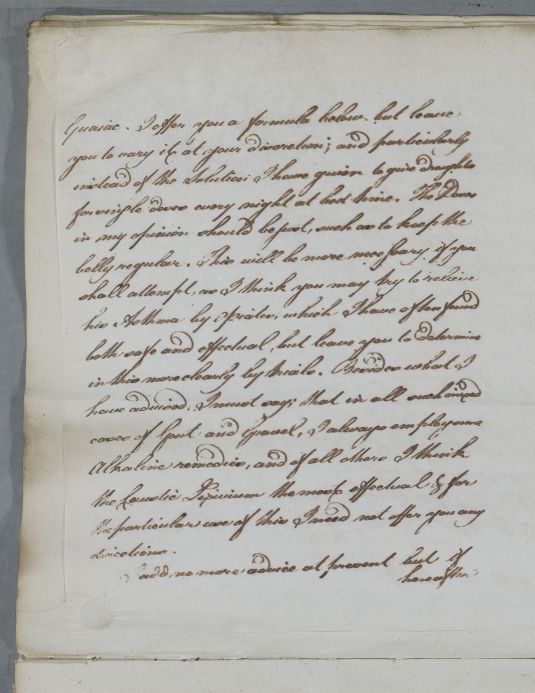 Guaiac. I offer you a formula below but leave
you to vary it at your discretion; and particularly
instead of the Solution I have given to give draughts
for single doses every night at bed time. The Dose
in my opinion should be just, such as to keep the
belly regular. This will be more necessary if you
shall attempt, as I think you may try to relieve
his Asthma by Opiates, which I have often found
both safe and effectual, but leave you to determine
in this more clearly by trials. Besides what I
have advised, I must say, that in all such mixed
cases of Gout and Gravel, I always employ some
Alkaline remedies, and of all others I think
the Caustic Lixivium the most effectual & for
the particular use of this I need not offer you any
directions.
I add no more advice at present but if
hereafter